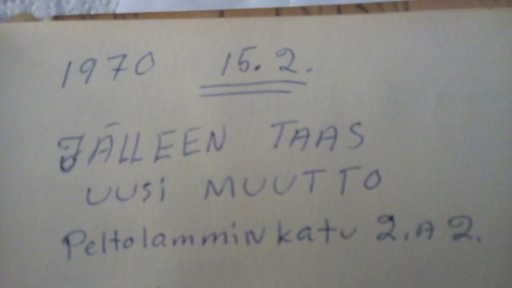 1970 15.2.
JÄLLEEN TAAS
UUSi MUUTTO
Peltolamminkatu 2.A 2.